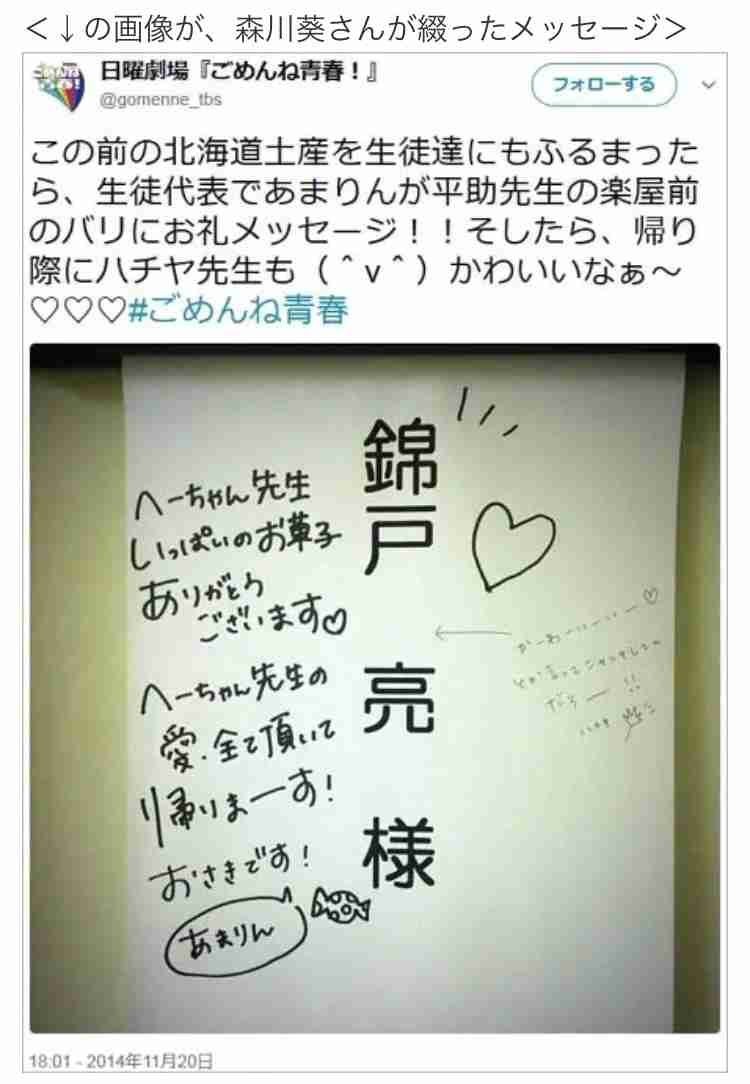 ＜↓の画像が、森川葵さんが綴ったメッセージ＞
日曜劇場『ごめんね青春！』
@gomenne_tbs
フォローする
この前の北海道土産を生徒達にもふるまった
ら、生徒代表であまりんが平助先生の楽屋前
のバリにお礼メッセージ！！そしたら、帰り
際にハチヤ先生も（＾ｖ＾）かわいいなぁ〜
♡♡♡#ごめんね青春
錦戸 亮 様
へーちゃん先生
いっぱいのお菓子
ありがとう
ございます♡
へーちゃん先生の
愛、全て頂いて
帰りまーす！
おさきです！
あまりん
かーわーいーいーー♡
だろー!!
18:01 - 2014年11月20日